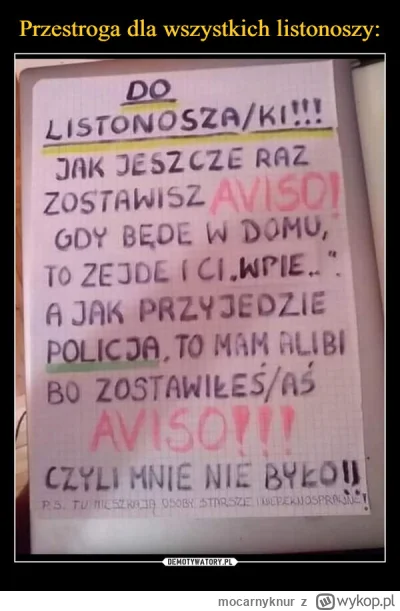 Przestroga dla wszystkich listonoszy:
DO
LISTONOSZA/KI!!!
JAK JESZCZE RAZ
ZOSTAWISZ AVISO!
GDY BĘDE W DOMU,
TO ZEJDE I CI „WPIE..”.
A JAK PRZYJEDZIE
POLICJA, TO MAM ALIBI
BO ZOSTAWIŁEŚ/AŚ
AVISO!!!
CZYLI MNIE NIE BYŁO!!
P.S. TU MIESZKAJĄ OSOBY STARSZE I NIEPEŁNOSPRAWNE!
DEMOTYWATORY.PL
mocarnyknur z wykop.pl